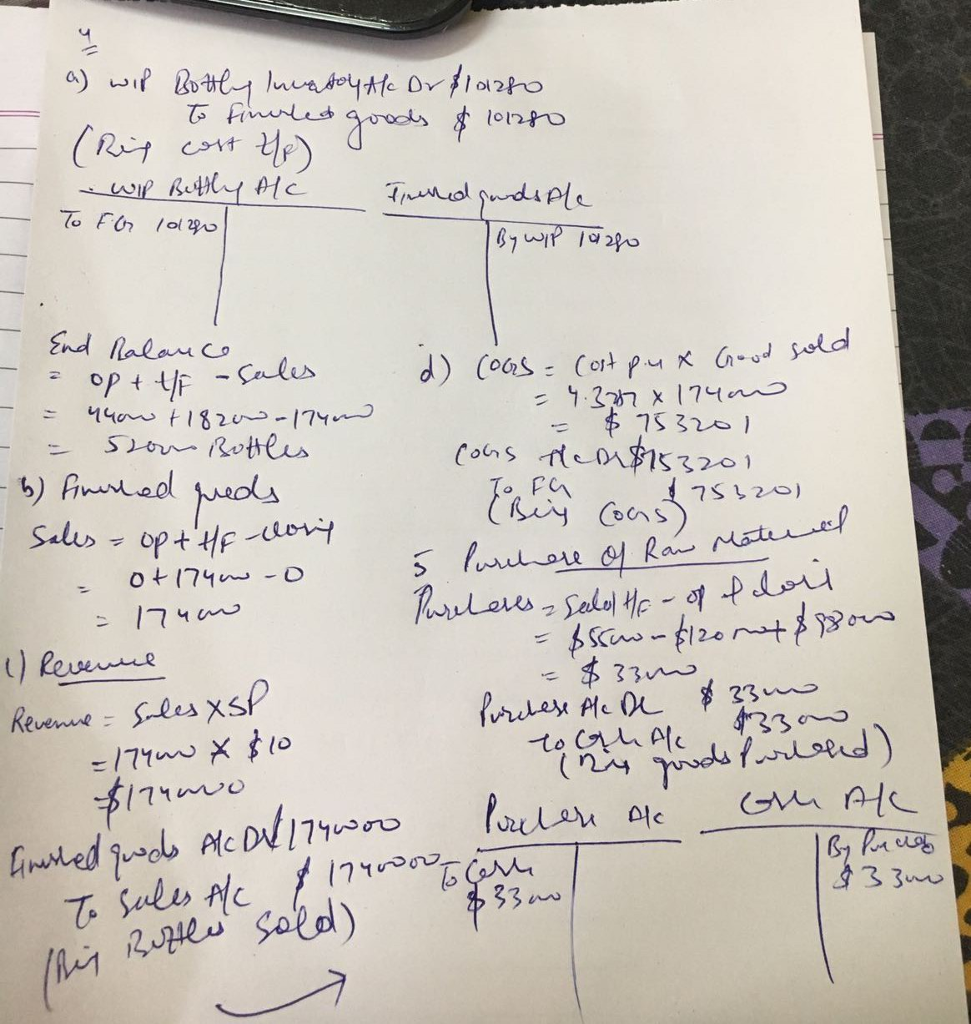 4
a) WIP Bottling Inventory A/c Dr $101280
To Finished goods $ 101280
(Being cost t/f)
WIP Bottling A/C
To FG 101280
Finished goods A/c
By WIP 101280
End Balance
= OP + t/F - Sales
= 44000 + 182000 - 174000
= 52000 Bottles
b) Finished goods
Sales = OP + t/F - closing
= 0 + 174000 - 0
= 174000
c) Revenue
Revenue = Sales X SP
= 174000 X $10
= $1740000
Finished goods A/c Dr $1740000
To Sales A/c $ 1740000
(Being Bottles Sold)
d) COGS = Cost p.u X Good sold
= 4.3287 x 174000
= $ 753201
COGS A/c Dr $753201
To FG $ 753201
(Being COGS)
5 Purchase of Raw Material
Purchases = t/F - op + closing
= $55000 - $120000 + $98000
= $ 33000
Purchase A/c Dr $ 33000
To Cash A/c $33000
(Being goods Purchased)
Purchase A/c
To Cash
$33000
Cash A/c
By Purchases
$ 33000